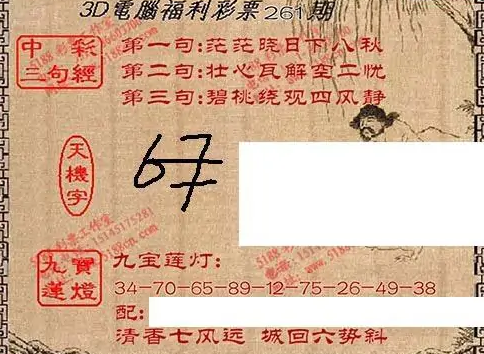 3D電腦福利彩票261期
中彩
三句經
第一句:茫茫晓日下八秋
第二句:壮心瓦解空二忧
第三句:碧桃绕观四风静
天機字
67
九寶
蓮燈
九宝莲灯:
34-70-65-89-12-75-26-49-38
配:
清香七风远 城回六势斜